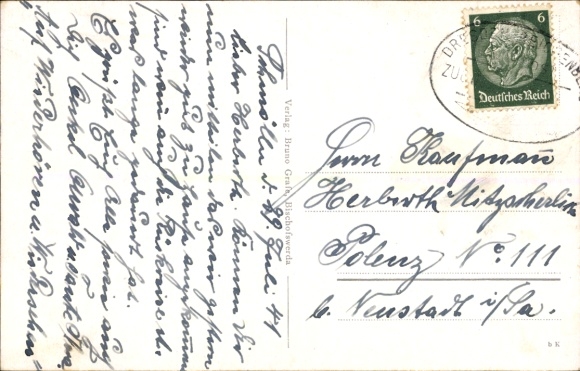 Schmölln d. 29 Juli 41
Lieber Herberth. Können Dir
nun mitteilen das wir gestern
wieder gut zu Hause angekommen
sind wenn auch die Rückreise etw.
was lange gedauert hat.
Es grüßt Euch Alle
Dein Onkel u Tante
Auf Wiederhören u. Wiedersehen
Verlag: Bruno Grafe, Bischofswerda
6 6
Deutsches Reich
Herrn Kaufmann
Herberth Nitzscherlich
Polenz No. 111
b. Neustadt i/Sa.
b K